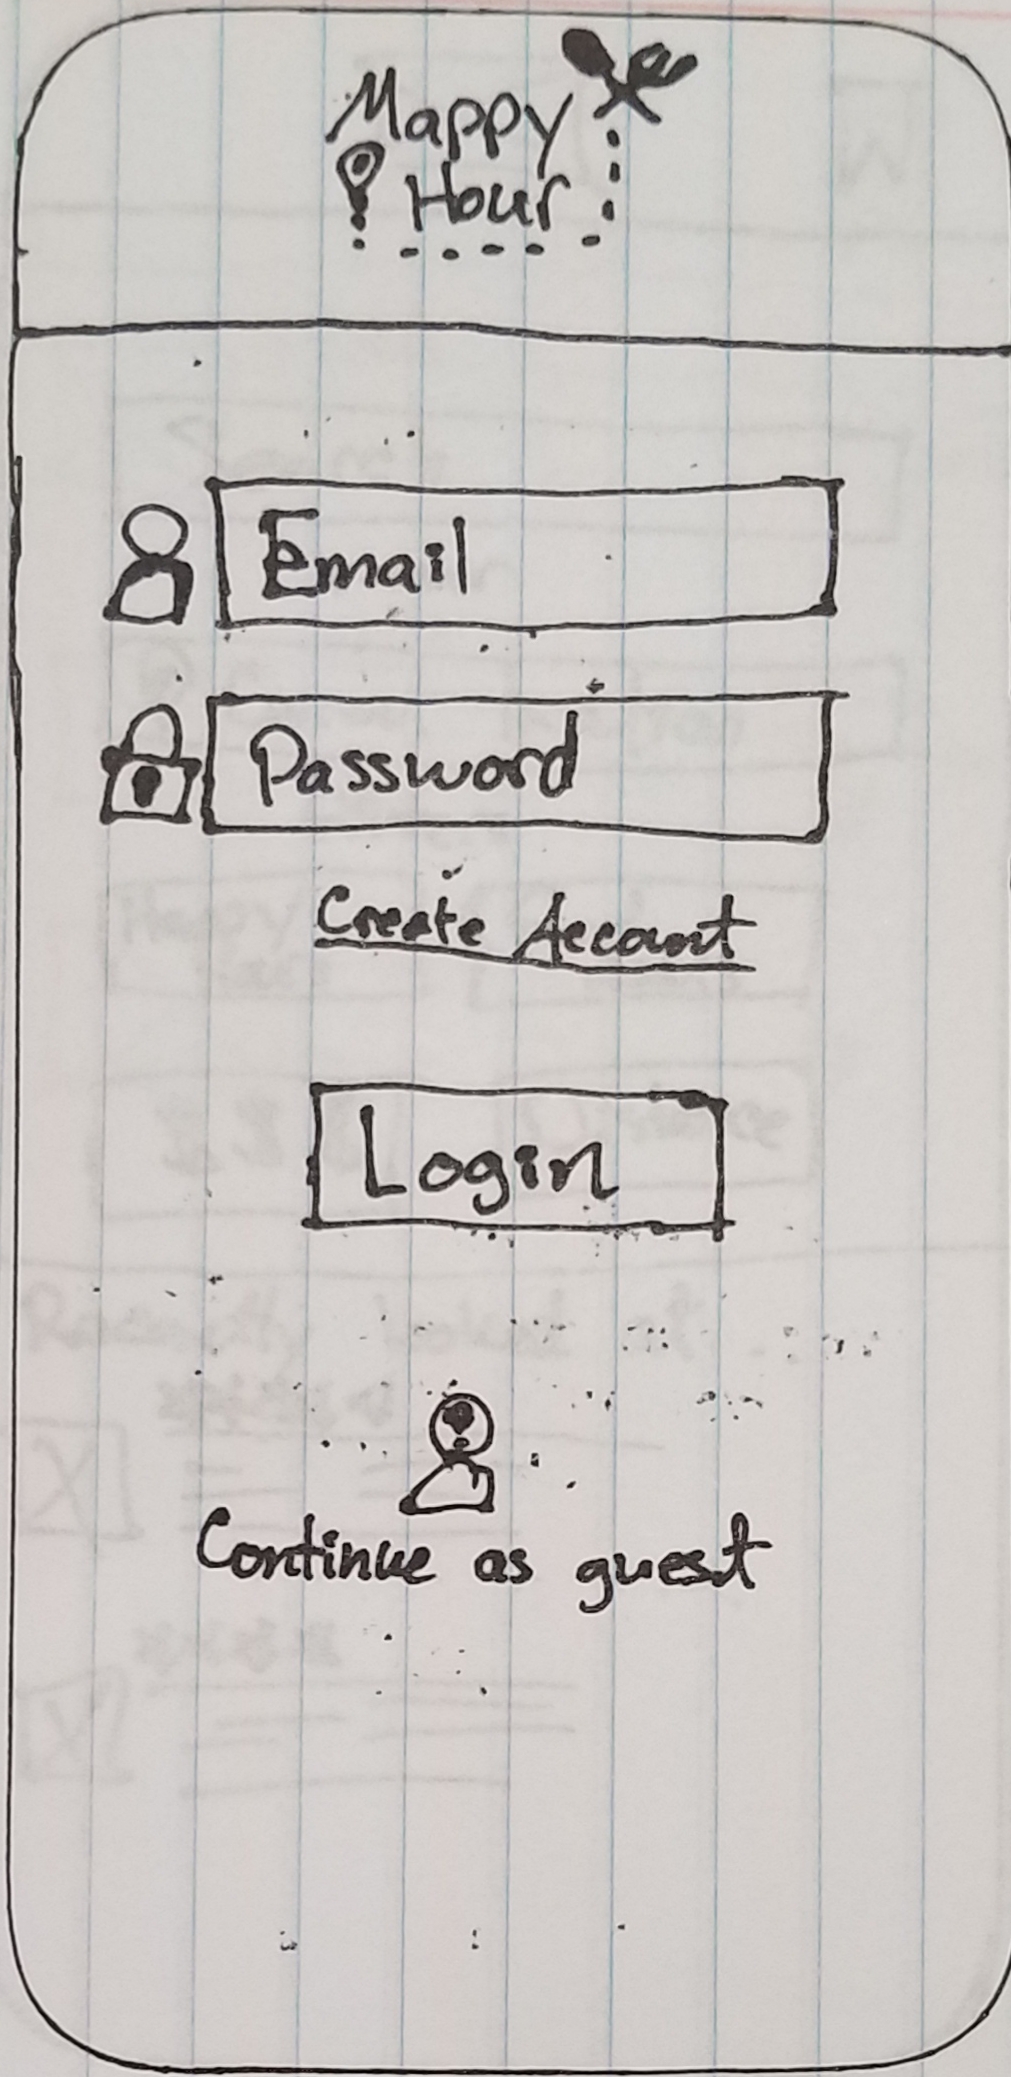 Mappy
Hour
Email
Password
Create Account
Login
Continue as guest